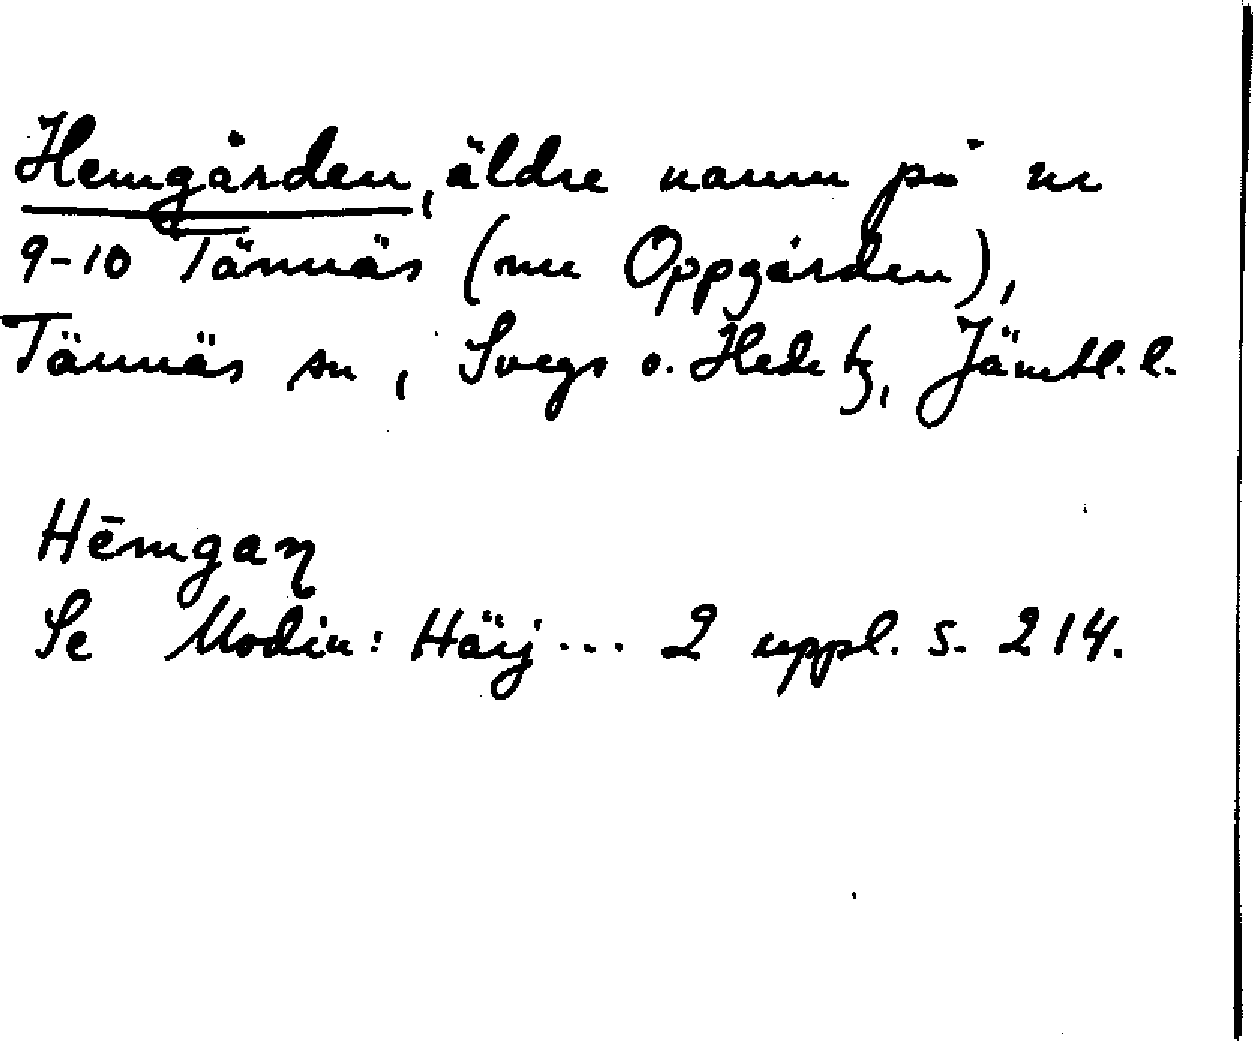 Hemgården, äldre namn på nr
9-10 Tännäs (nu Oppgården),
Tännäs sn, Svegs o. Hede tg, Jämtl. l.
Hēmgaɳ
Se Modin: Härj... 2 uppl. s. 214.